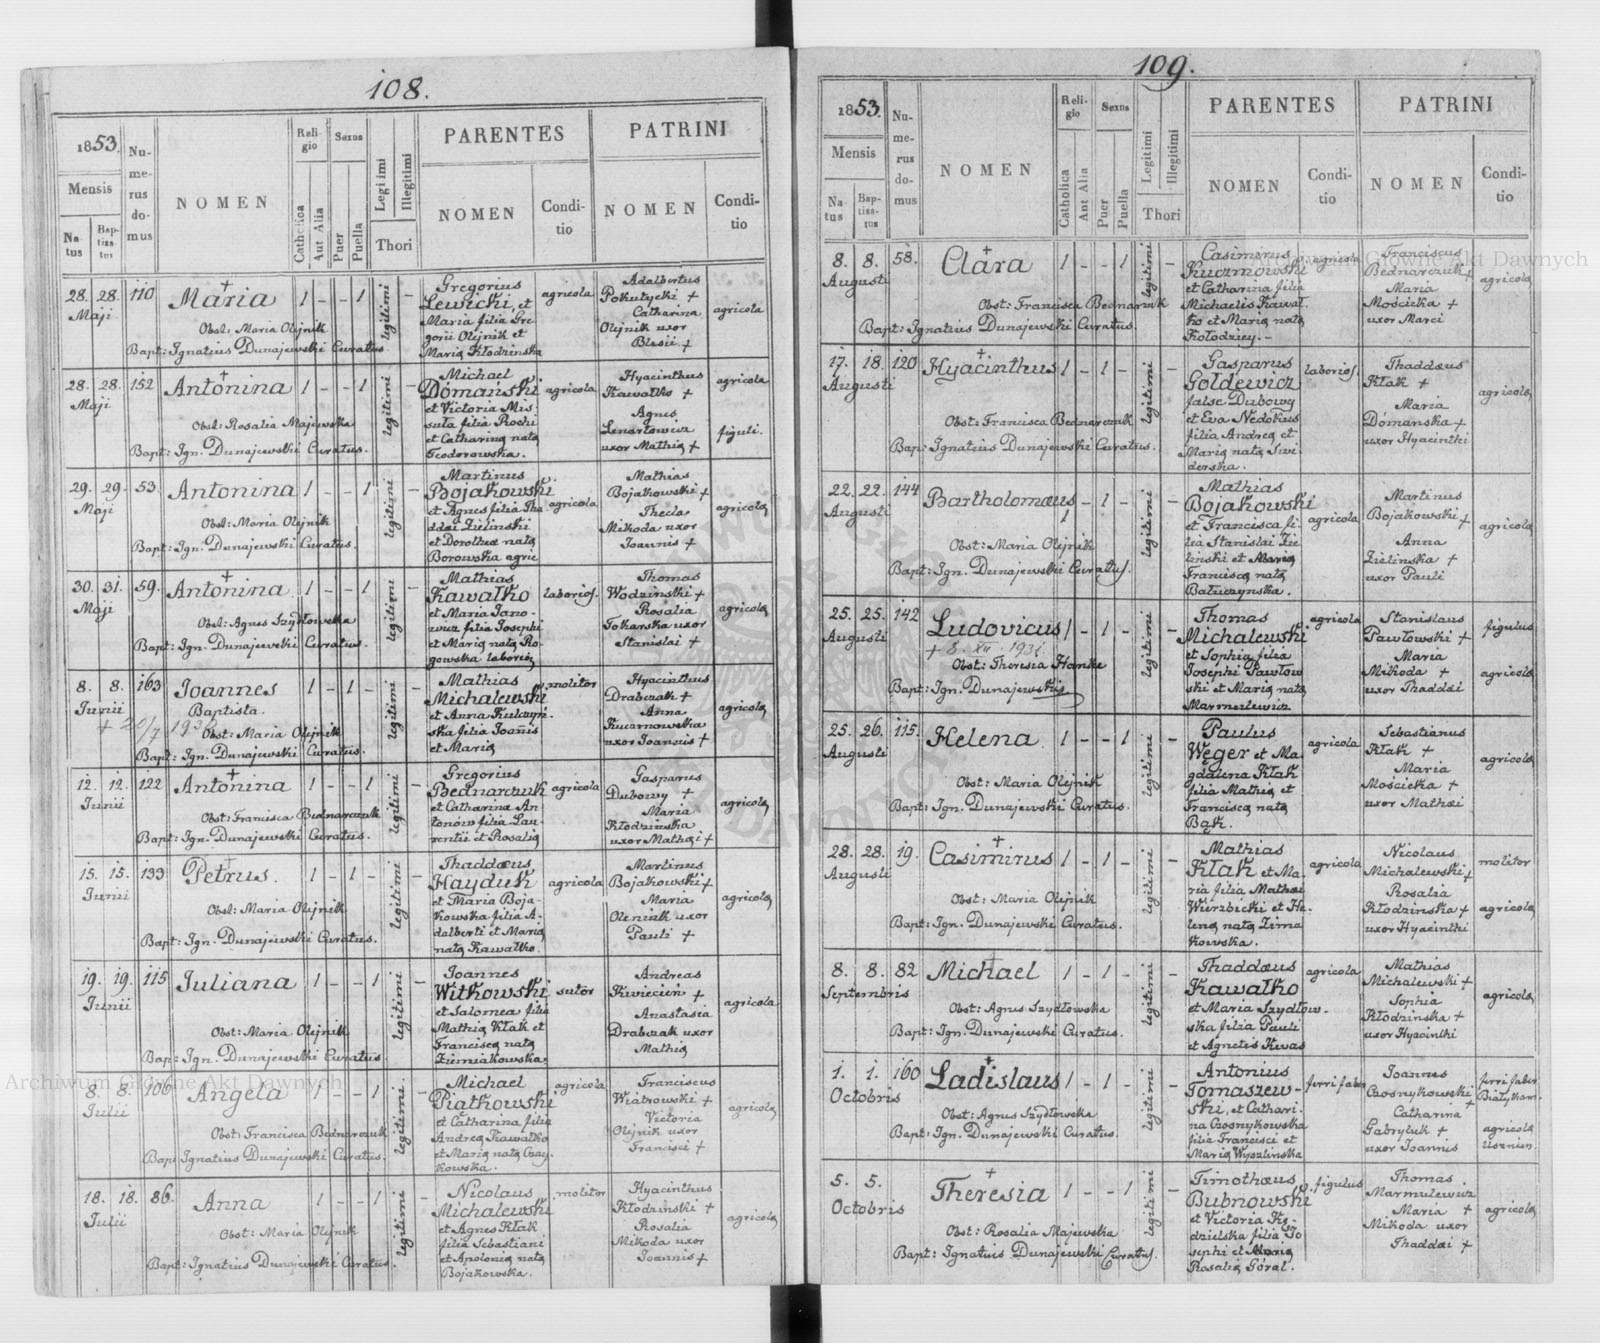 108.
1853.
Mensis
Natus
Baptisatus
Numerus domus
NOMEN
Religio
Catholica
Aut Alia
Sexus
Puer
Puella
Legitimi
Illegitimi
Thori
PARENTES
NOMEN
Conditio
PATRINI
NOMEN
Conditio
28. 28. 110 Maria 1 - - 1 legitimi -
Maji
Obst: Maria Olejnik
Bapt: Ignatius Dunajewski Curatus
Gregorius
Lewicki, et
Maria filia Gre-
gorii Olejnik et
Maria Kłodzinska
agricola
Adalbertus
Pokutycki +
Catharina
Olejnik uxor
Blasii +
agricola
28. 28. 152 Antonina 1 - - 1 legitimi -
Maji
Obst: Rosalia Majewska
Bapt: Ign. Dunajewski Curatus.
Michael
Domański
et Victoria Mis-
suta filia Rochi
et Catharina nata
Teodorowska.
agricola
Hyacinthus
Kawałko +
Agnes
Lenartowicz
uxor Mathia +
agricola
figuli.
29. 29. 53. Antonina 1 - - 1 legitimi -
Maji
Obst: Maria Olejnik
Bapt: Ign. Dunajewski Curatus.
Martinus
Bojakowski
et Agnes filia Tha-
ddai Zielinski
et Dorothea nata
Borowska agric
agricola
Mathias
Bojakowski +
Thecla
Mikoda uxor
Joannis +
agricola
30. 31. 59. Antonina 1 - - 1 legitimi -
Maji
Obst: Agnes Szydłowska
Bapt: Ign. Dunajewski Curatus.
Mathias
Kawałko
et Maria Jano-
wicz filia Josephi
et Maria nata Ro-
gowska laborios
laborios.
Thomas
Wodzinski +
Rosalia
Tokarska uxor
Stanislai +
agricola
8. 8. 163 Joannes 1 - 1 - legitimi -
Junii Baptista.
+ 20/7 193
Obst: Maria Olejnik
Bapt: Ign. Dunajewski Curatus.
Mathias
Michalewski
et Anna Kulczyń-
ska filia Joanis
et Maria
molitor
Hyacinthus
Drabczak +
Anna
Kuczmowska
uxor Joannis +
agricola
12. 12. 122 Antonina 1 - - 1 legitimi -
Junii
Obst: Francisca Bednarczuk
Bapt: Ign. Dunajewski Curatus.
Gregorius
Bednarczuk
et Catharina An-
tonów filia Lau-
rentii et Rosalia
agricola
Gasparus
Dubowy +
Maria
Kłodzinska
uxor Mathai +
agricola
15. 15. 133 Petrus. 1 - 1 - legitimi -
Junii
Obst: Maria Olejnik
Bapt: Ign. Dunajewski Curatus.
Thaddæus
Hayduk
et Maria Boja-
kowska filia A-
dalberti et Maria
nata Kawałko.
agricola
Martinus
Bojakowski +
Maria
Oleniuk uxor
Pauli +
agricola
19. 19. 115 Juliana 1 - - 1 legitimi -
Junii
Obst: Maria Olejnik
Bap: Ign. Dunajewski Curatus
Joannes
Witkowski
et Salomea filia
Mathia Kłak et
Francisca nata
Ziemiakowska.
sutor
Andreas
Kwiecień +
Anastasia
Drabczak uxor
Mathia
agricola
8. 8. 106 Angela 1 - - 1 legitimi. -
Julii
Obst: Francisca Bednarczuk
Bap: Ignatius Dunajewski Curatus.
Michael
Piatkowski
et Catharina filia
Andrea Kawałko
et Maria nata Czay-
kowska.
agricola
Franciscus
Wiatrowski +
Victoria
Olejnik uxor
Francisci +
agricola
18. 18. 86. Anna 1 - - 1 legitimi -
Julii
Obst: Maria Olejnik
Bapt: Ignatius Dunajewski Curatus.
Nicolaus
Michalewski
et Agnes Kłak
filia Sebastiani
et Apolonia nata
Bojakowska.
molitor
Hyacinthus
Kłodzinski +
Rosalia
Mikoda uxor
Joannis +
agricola
109.
1853.
Mensis
Natus
Baptissatus
Numerus domus
NOMEN
Religio
Catholica
Ant Alia
Sexus
Puer
Puella
Legitimi
Illegitimi
Thori
PARENTES
NOMEN
Conditio
PATRINI
NOMEN
Conditio
8. 8. 58. Clara 1 - - 1 legitimi
Augusti
Obst: Francisca Bednarzuk
Bapt: Ignatius Dunajewski Curatus.
Casimirus
Kuczmowski
et Catharina filia
Michaelis Kawał-
ko et Maria nata
Kołodziey. -
agricola
Franciscus
Bednarczuk +
Maria
Mościcka +
uxor Marci
agricola
17. 18. 120 Hyacinthus 1 - 1 - legitimi -
Augusti
Obst: Francisca Bednarczuk
Bap: Ignatius Dunajewski Curatus.
Gasparus
Goldewicz
false Dubowy
et Eva Nedokus
filia Andrea et
Maria nata Swi-
derska.
laborios.
Thaddæus
Kłak +
Maria
Domańska +
uxor Hyacinthi
agricola
22. 22. 144 Bartholomæus - 1 - legitimi -
Augusti 1
Obst: Maria Olejnik
Bapt: Ign. Dunajewski Curatus.
Mathias
Bojakowski
et Francisca fi-
lia Stanislai Zie-
linski et Maria
Francisca nata
Bałuczynska.
agricola
Martinus
Bojakowski +
Anna
Zielinska +
uxor Pauli
agricola
25. 25. 142 Ludovicus 1 - 1 - legitimi -
Augusti
+ 8. XII. 193
Obst: Theresia Hanke
Bapt: Ign. Dunajewski
Thomas
Michalewski
et Sophia filia
Josephi Pawłow-
ski et Maria nata
Marmulewicz
agricola
Stanislaus
Pawłowski +
Maria
Mikoda +
uxor Thaddai
figulus
agricola
25. 26. 115. Helena 1 - - 1 legitimi -
Augusti
Obst: Maria Olejnik
Bapt: Ign. Dunajewski Curatus.
Paulus
Weger et Ma-
gdalena Kłak
filia Mathia et
Francisca nata
Bąk.
agricola
Sebastianus
Kłak +
Maria
Mościcka +
uxor Mathæi
agricola
28. 28. 19. Casimirus 1 - 1 - legitimi -
Augusti
Obst: Maria Olejnik
Bapt: Ign. Dunajewski Curatus.
Mathias
Kłak et Ma-
ria filia Mathæi
Wierzbicki et He-
lena nata Zima
kowska.
agricola
Nicolaus
Michalewski +
Rosalia
Kłodzinska +
uxor Hyacinthi
molitor
agricola
8. 8. 82 Michael 1 - 1 - legitimi -
Septembris
Obst: Agnes Szydłowska
Bapt: Ign. Dunajewski Curatus.
Thaddæus
Kawałko
et Maria Szydłow-
ska filia Pauli
et Agnetis Kwas
agricola
Mathias
Michalewski +
Sophia
Kłodzinska +
uxor Hyacinthi
agricola
1. 1. 160 Ladislaus 1 - 1 - legitimi -
Octobris
Obst: Agnes Szydłowska
Bapt: Ign. Dunajewski Curatus.
Antonius
Tomaszew-
ski, et Cathari-
na Czosnykowska
filia Francisci et
Maria Wyszlinska
ferri faber
Joannes
Czosnykowski +
Catharina
Gabryluk +
uxor Joannis
ferri faber
Białykam.
agricola
Usznien.
5. 5. Theresia 1 - - 1 legitimi -
Octobris
Obst: Rosalia Majewska
Bapt: Ignatius Dunajewski Curatus.
Timothæus
Bubnowski
et Victoria Kę-
dzielska filia Jo-
sephi et Maria
Rosalia Góral.
figulus
Thomas
Marmulewicz
Maria +
Mikoda uxor
Thaddai +
agricola
Archiwum Główne Akt Dawnych
Archiwum Główne Akt Dawnych